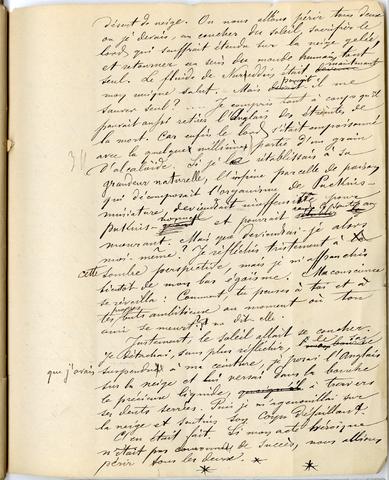 désert de neige. Ou nous allons périr tous deux
ou je devais, au coucher du soleil, sacrifier le
lord qui souffrait étendu sur la neige gelée
et retourner au sein du monde humain, tout
seul. Le fluide de Nureddin était
mon unique salut. Mais pouvait il me
sauver seul? Je compris tout à coup qu'il
pouvait aussi retirer l'Anglais des étreintes de
la mort. Car enfin le lord s'était empoisonné
avec la quelques millième partie d'un grain
d'alcaloïde. Si je le rétablissais à sa
grandeur naturelle, l'infime parcelle de poison
qui décomposait l'organisme de Puckins-
miniature, deviendrait inoffensive pour
Puckins-normal et pourrait
mourant. Mais que deviendrai-je alors
moi-même. Je réfléchis tristement à
cette sombre perspective, mais je m'affranchis
bientôt de mon bas égoïsme. Ma conscience
se réveilla: Comment, tu penses à toi et à
tes buts ambitieux au moment où ton
ami se meurt? me dit elle.
Justement, le soleil allait se coucher.
Je détachai, sans plus réfléchir,
que j'avais suspendu à ma ceinture, je posai l'Anglais
sur la neige et lui versai dans la bouche
le précieux liquide, à travers
ses dents serrés. Puis je m'agenouillai sur
la neige et soutins son corps défaillant.
C'en était fait. Si mon acte héroïque
n'était pas couronné de succès, nous allions
périr tous les deux.
* * *